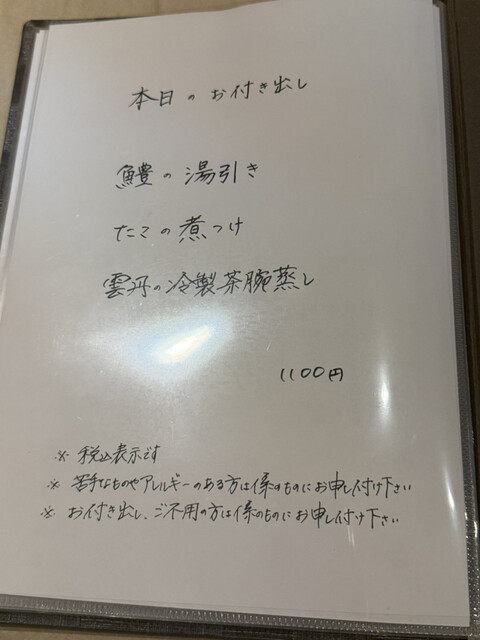 本日のお付き出し
鱧の湯引き
たこの煮つけ
雲丹の冷製茶腕蒸し
1100円
※ 税込表示です
※ 苦手なものやアレルギーのある方は係のものにお申し付け下さい
※ お付き出し、ご不用の方は係のものにお申し付け下さい